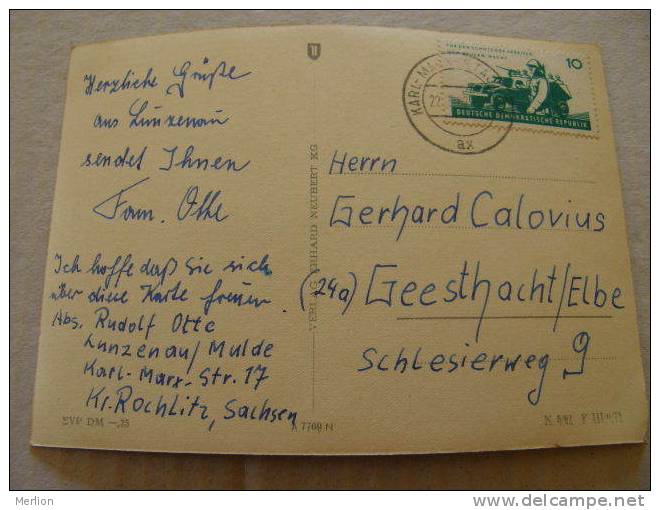 Herzliche Grüße
aus Lunzenau
sendet Ihnen
Fam. Otte
Ich hoffe daß Sie sich
über diese Karte freuen.
Abs. Rudolf Otte
Lunzenau/Mulde
Karl-Marx-Str. 17
Kr. Rochlitz, Sachsen
EVP DM —,25
VERLAG GEHARD NEUBERT KG
A 7769 N
KARL-MARX-STADT
22.
ax
10
DEUTSCHE DEMOKRATISCHE REPUBLIK
Herrn
Gerhard Calovius
(24a) Geesthacht/Elbe
Schlesierweg 9
Merlion
http://www.delcampe.net